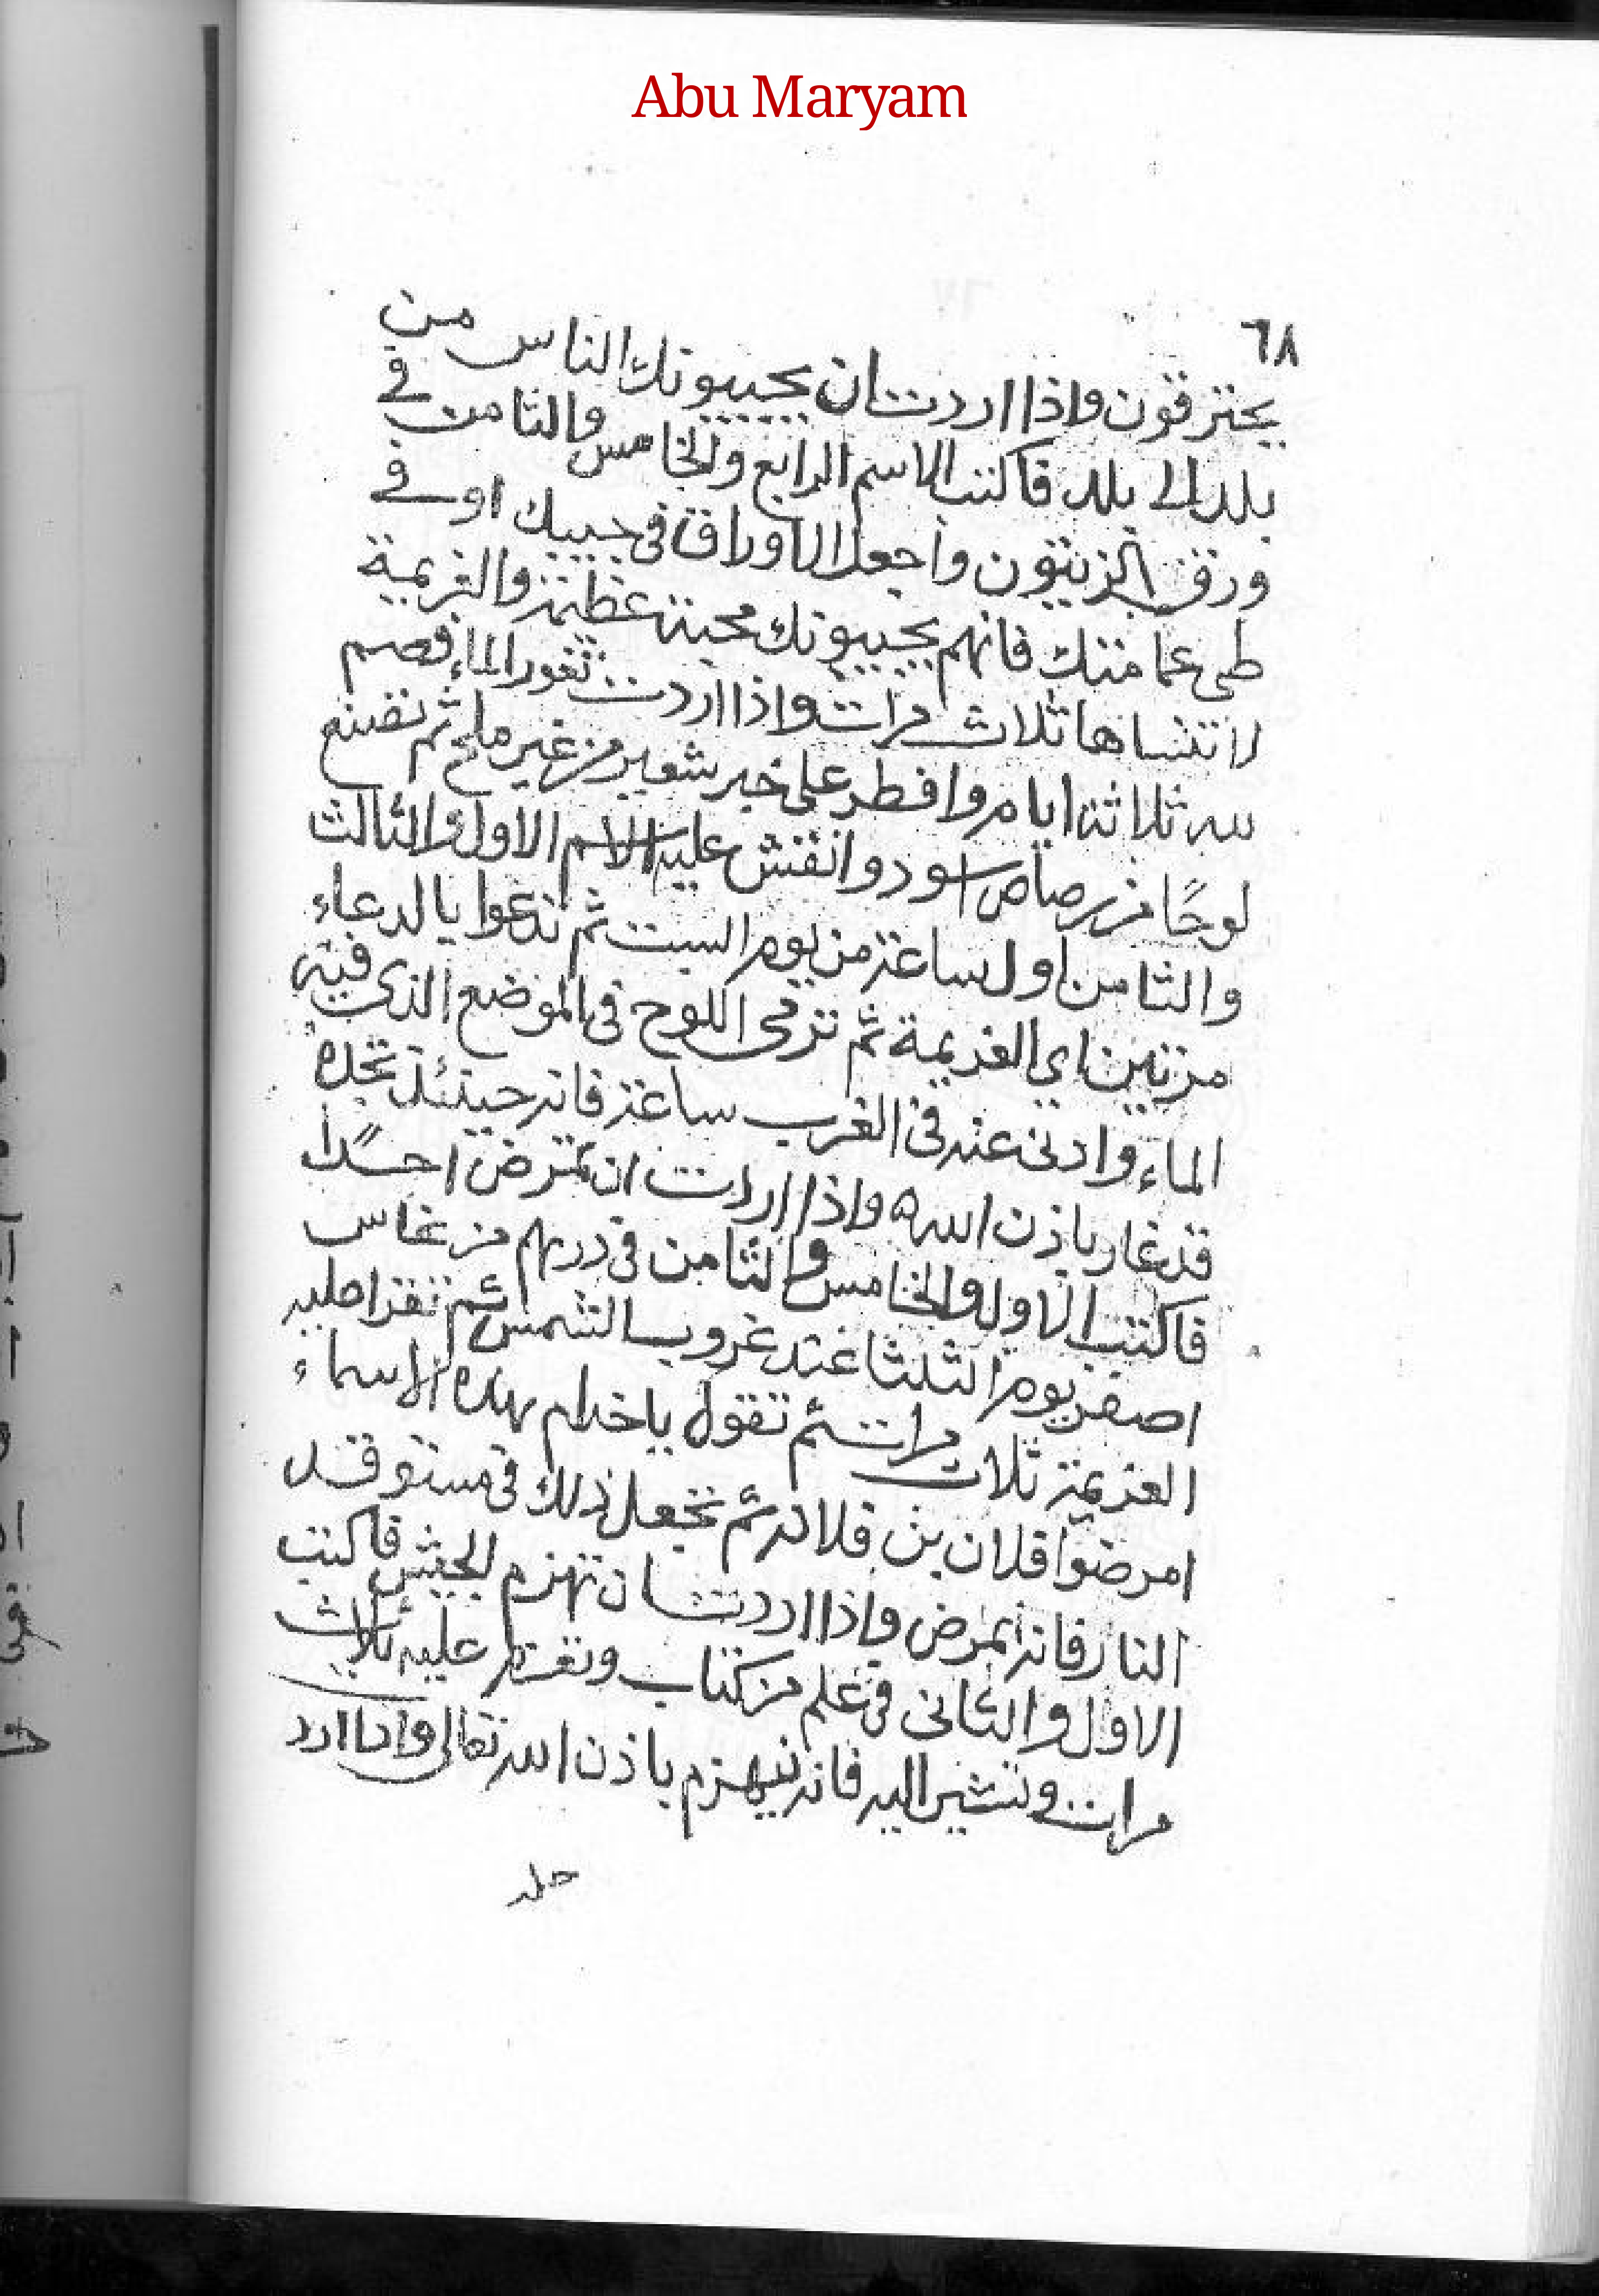 Abu Maryam
٦٨
يحترقون واذا اردت ان يحيبونك الناس من
بلد الى بلد فاكتب الاسم الرابع والخامس والثامن في
ورق الزيتون واجعل الاوراق في جيبك او في
طي عمامتك فانهم يحيبونك محبة عظيمة والعزيمة
لا تنساها ثلاث مرات واذا اردت تغور الماء فصم
لله ثلاثة ايام وافطر على خبر شعير من غير ملح ثم تصنع
لوحًا من رصاص اسود وانقش عليه الاسم الاول والثالث
والثامن اول ساعة من يوم السبت ثم تدعوا بالدعاء
مرتين اي العزيمة ثم ترمى اللوح في الموضع الذي فيه
الماء وادنى عنه في القرب ساعة فانه حينئذ تجده
قد غار باذن الله ه واذا اردت ان تمرض احدًا
فاكتب الاول والخامس والثامن في درهم من نحاس
اصفر يوم الثلثا عند غروب الشمس ثم تقرا عليه
العزيمة ثلاث مرات ثم تقول يا خدام بهذه الاسماء
امرضوا فلان بن فلانه ثم تجعل ذلك في مستوقد
النار فانه يمرض واذا اردت ان تهزم الجيش فاكتب
الاول والثاني في علم من كتاب وتقرا عليه ثلاث
مرات وتشير اليه فانه ينهزم باذن الله تعالى واذا ارد